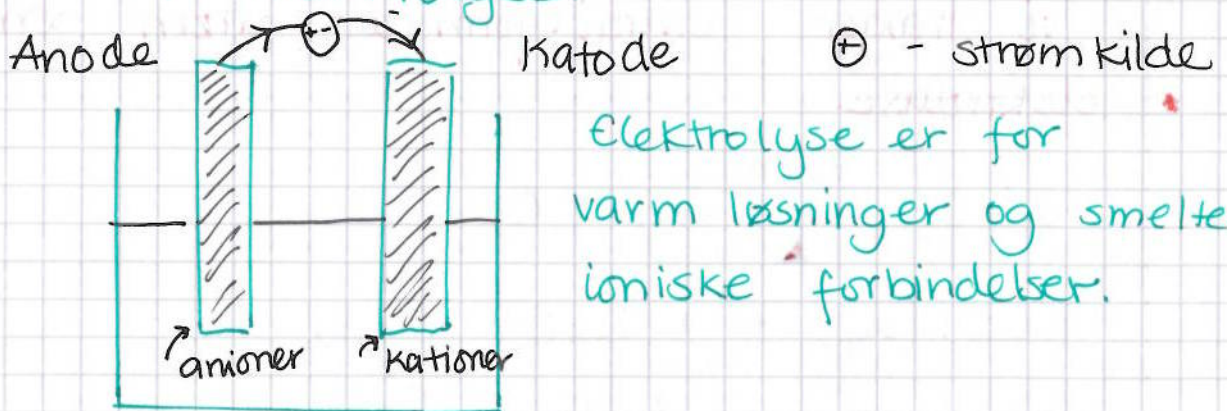 Anode Katode ⊕ - strømkilde
Elektrolyse er for
varm løsninger og smelte
ioniske forbindelser.
anioner kationer